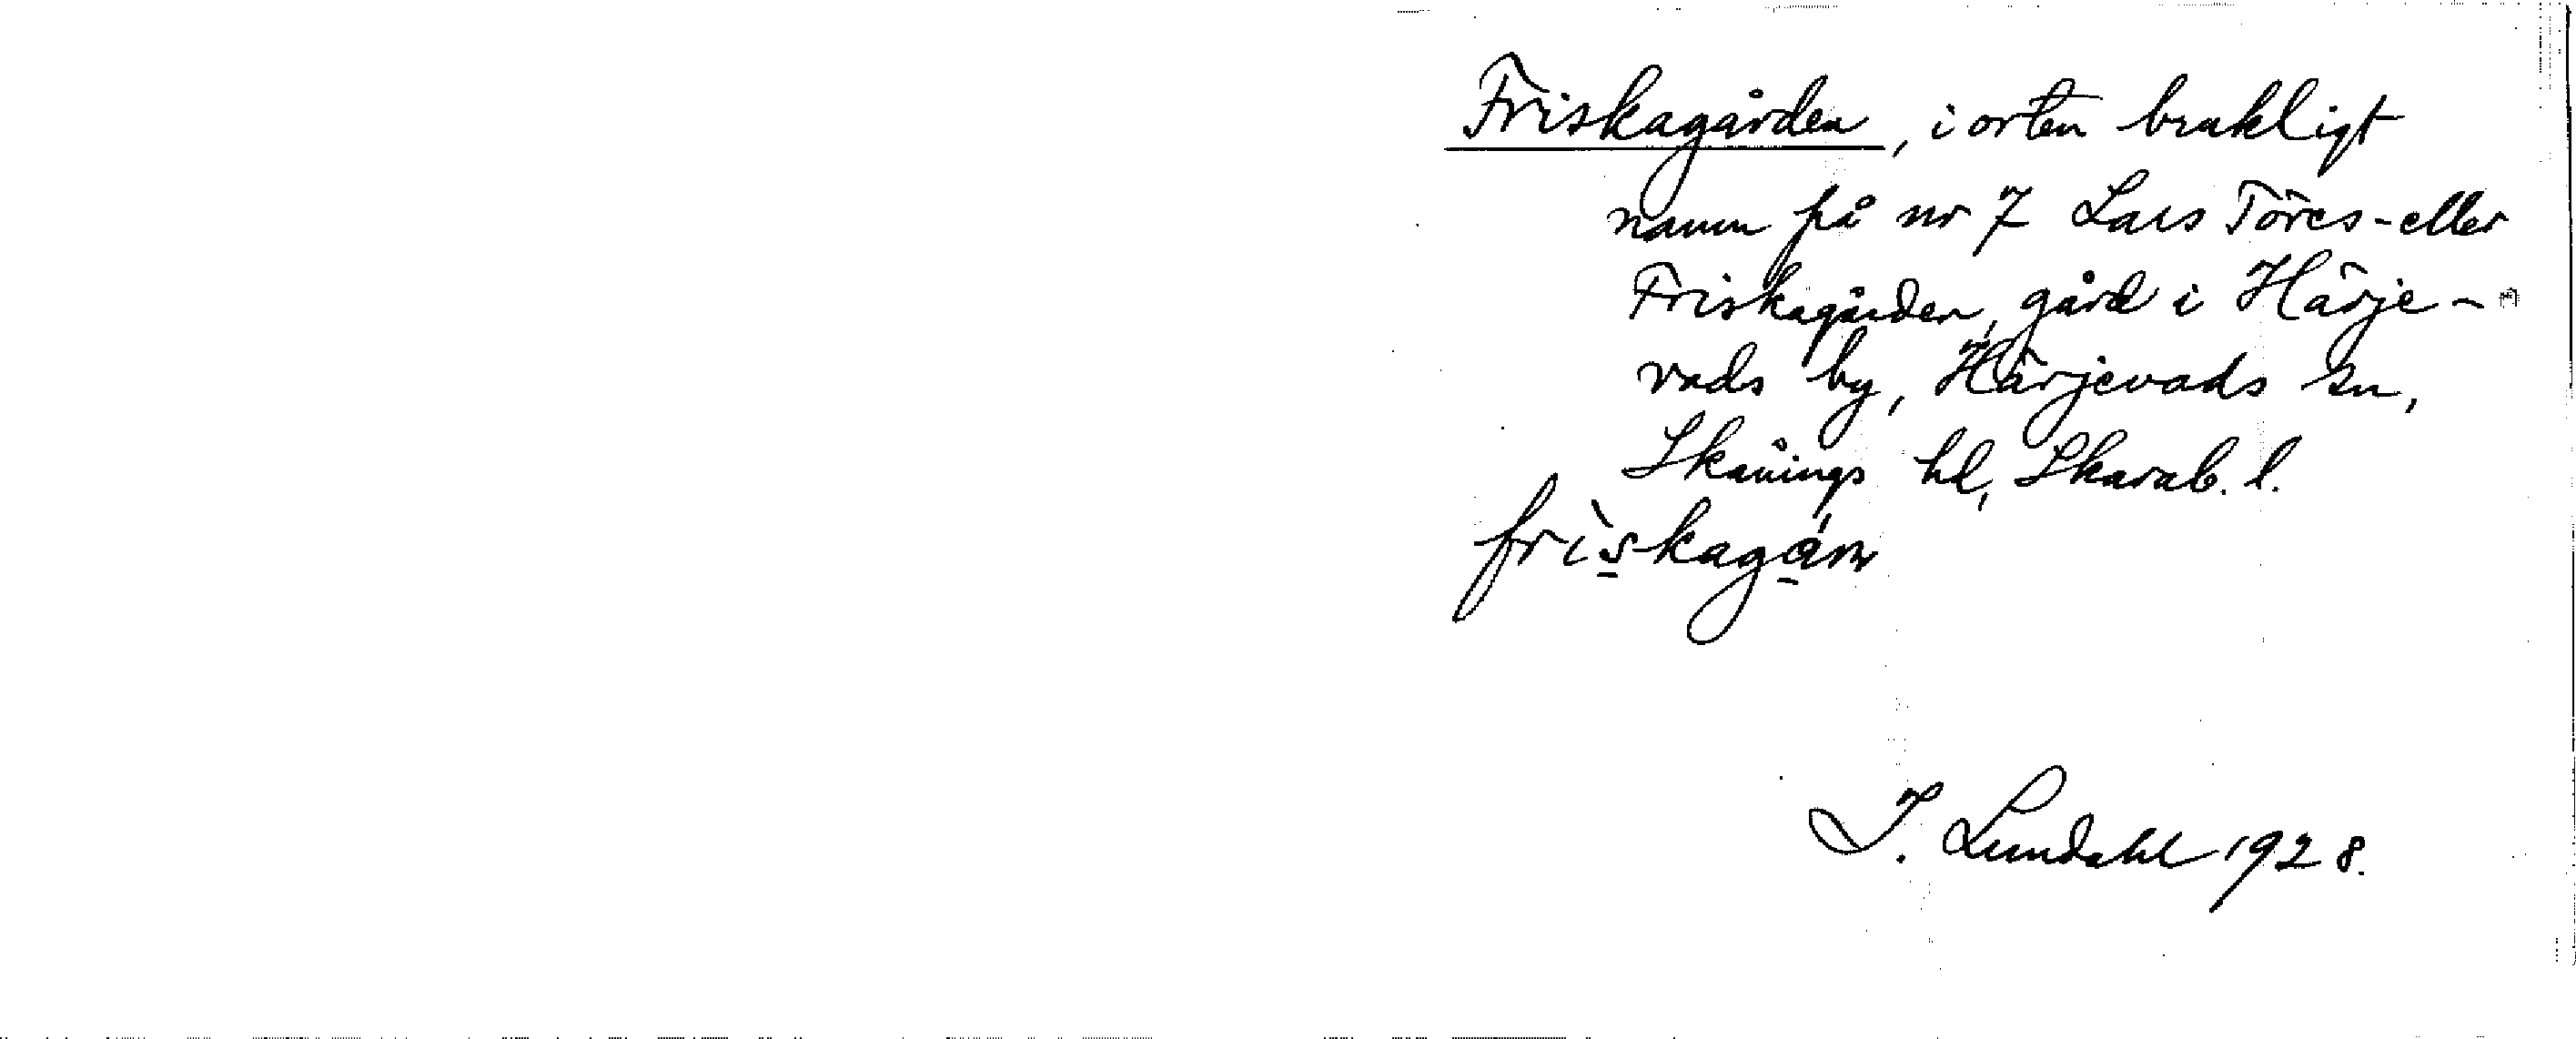 Friskagården, i orten brukligt
namn på nr 7 Lars Töres- eller
Friskagården, gård i Härje-
vads by, Härjevads sn,
Skånings hd, Skarab. l.
friskagán
I. Lundahl 1928.